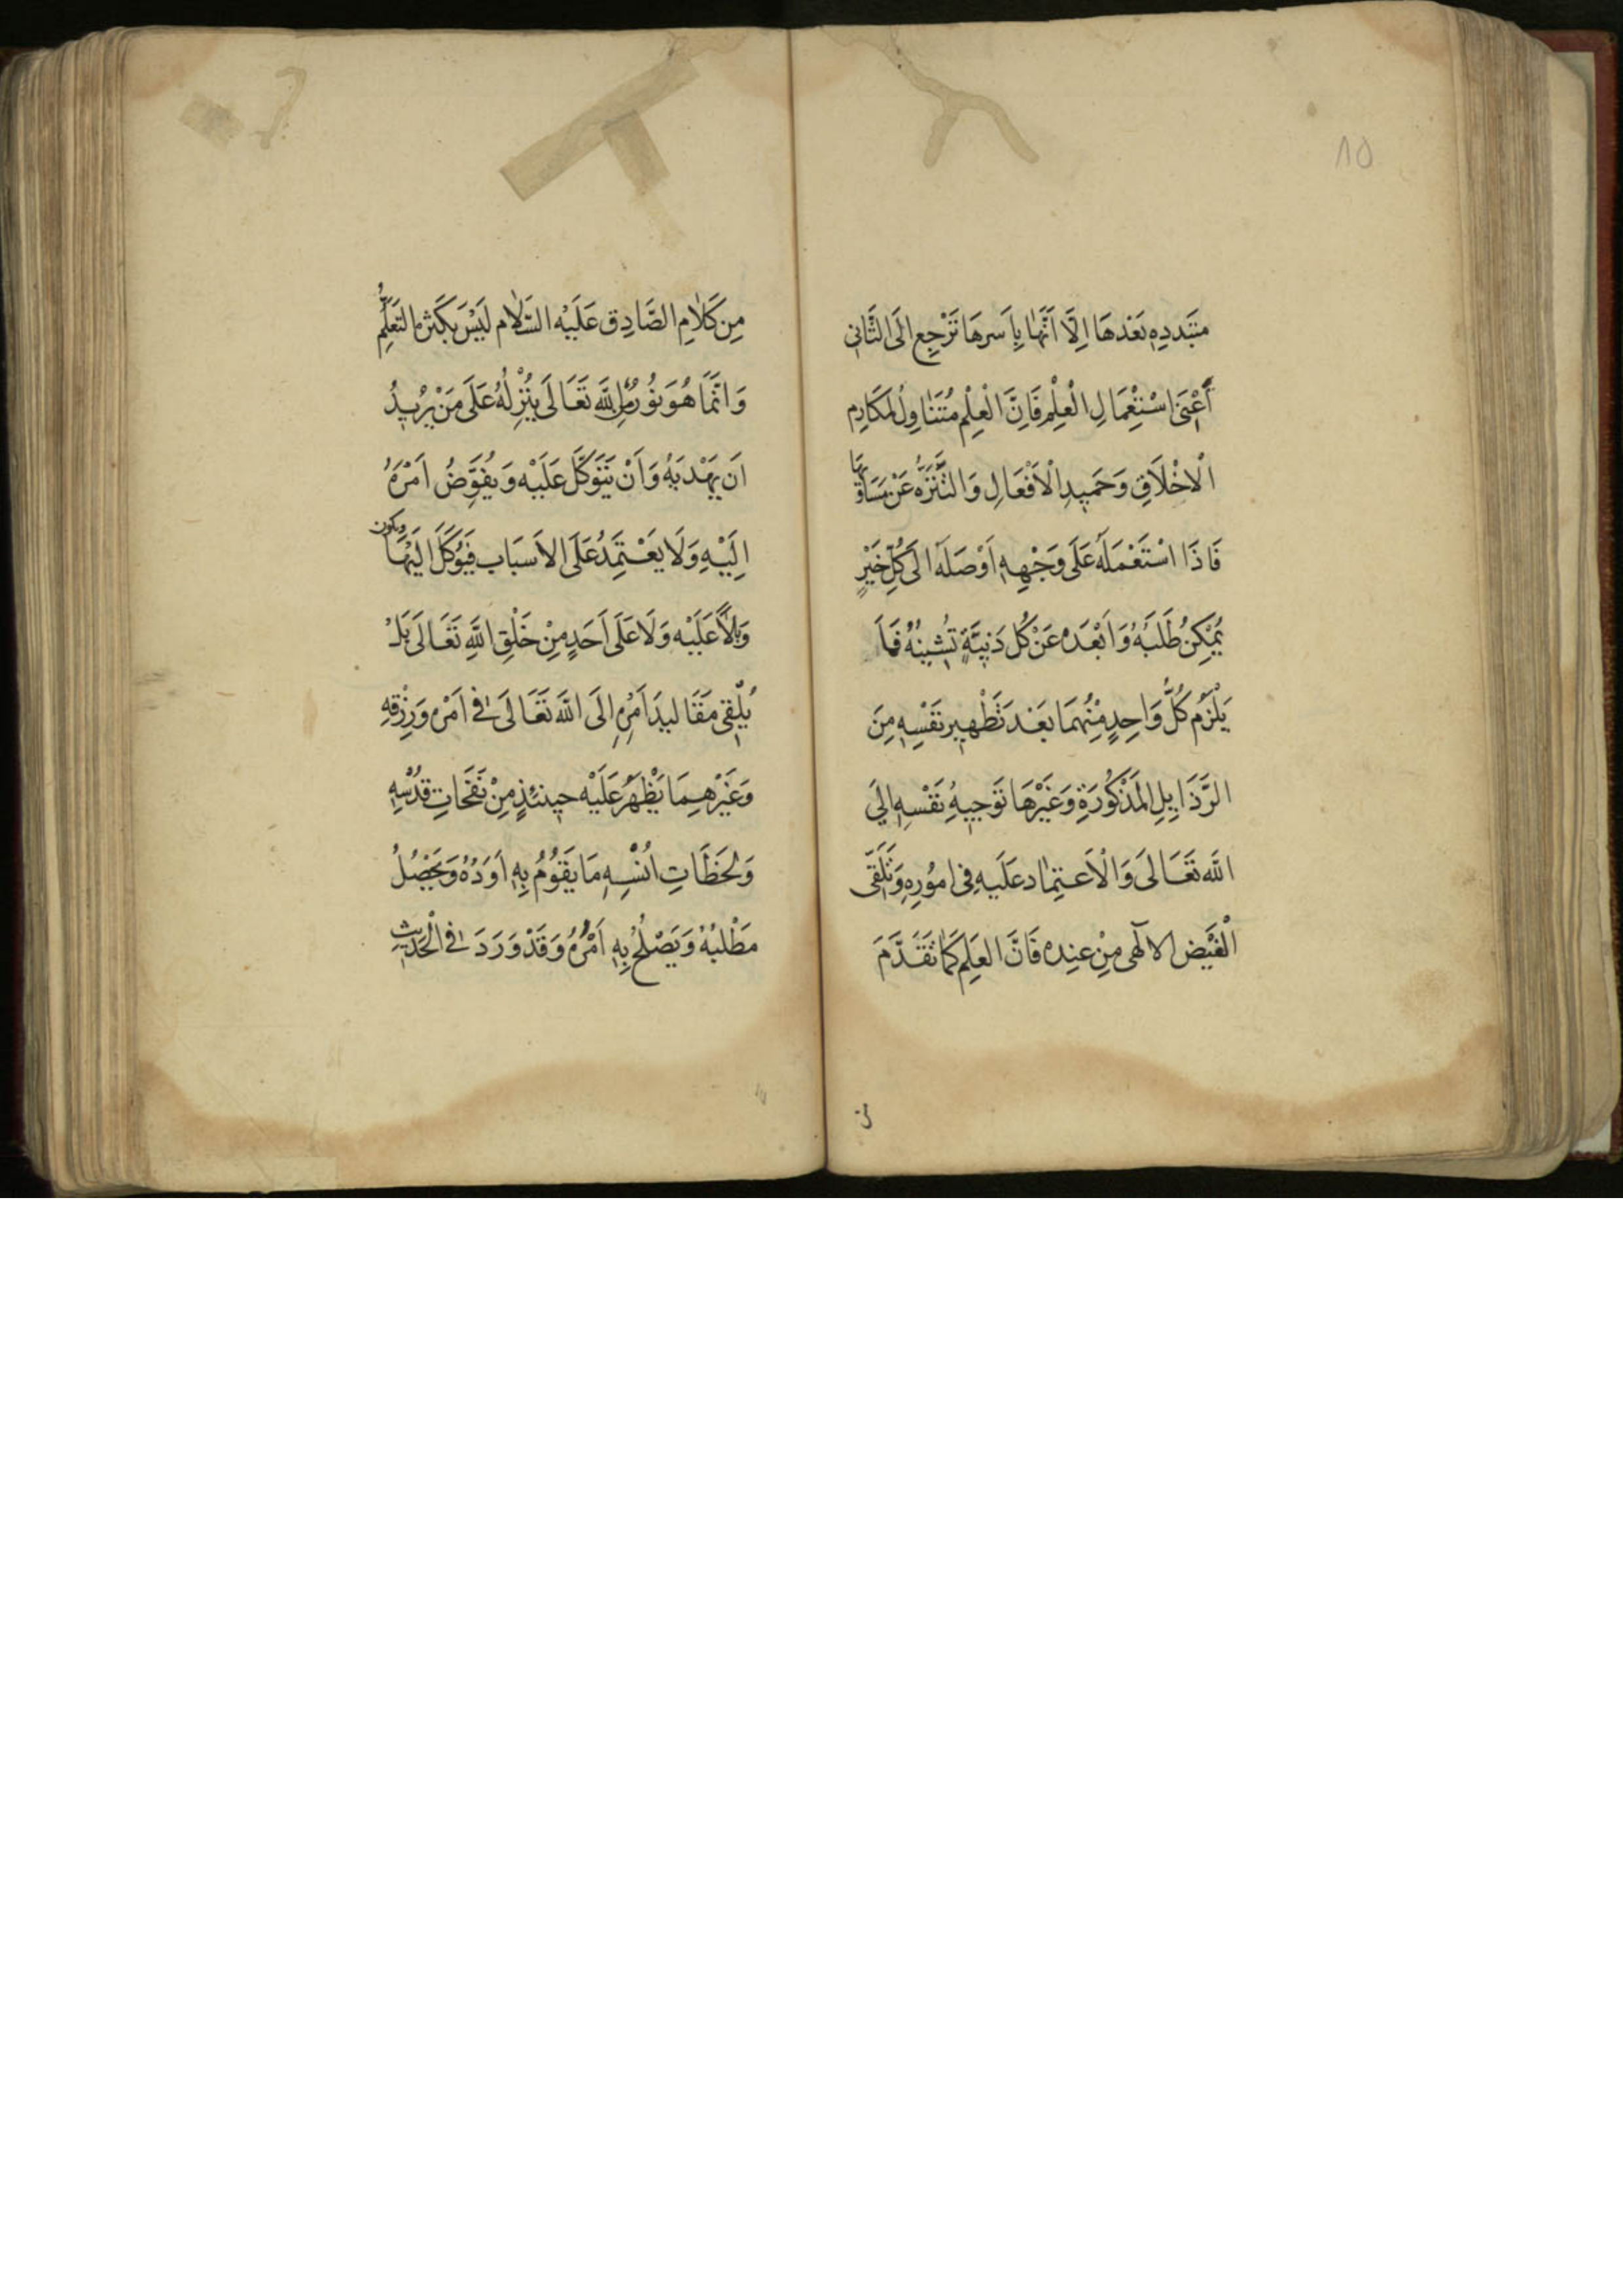 ٨٥
متبدده بَعْدَهَا اِلَّا اَنَّهَا بِاَسرهَا تَرْجِع الَى الثَّانى
أَعْنِى اسْتِعْمَالِ الْعِلْمِ فَاِنَّ الْعِلْمَ مُتَنَاوِلُ لمَكَارِم
الْاخْلَاقِ وَحَمِيدِ الْاَفْعَالِ وَالتَّنَزُّه عَنْ مَسَاوِيهَا
فَاذَا اسْتَعْمَلَهُ عَلَى وَجْهِهِ اَوْصَلَهُ الَى كُلِّ خَيْرٍ
يُمْكِنُ طَلَبُهُ وَاَبْعَدَه عَنْ كُل دَنِيَّةٍ تُشِينُهُ فمَا
يَلْزَمُ كُلَّ وَاحِدٍ مِنْهُمَا بَعْدَ تَطْهِيرِ نَفْسِهِ مِنَ
الرَّذَايِلِ المَذْكُورَةِ وَغَيْرِهَا تَوْجِيهُ نَفْسِهِ اِلىَ
اللَّه تَعَالَى وَالْاعتِمَاد عَلَيهِ فِى امُورِهِ وَتَلَقّى
الْفَيْض الالٓهى مِنْ عنِده فَانَّ العِلم كَمَا تَقَدَّمَ
مِن كَلَامِ الصَّادِق عَلَيْه السَّلَام لَيْسَ بكَثرة التَعَلُّم
وَانَّمَا هُوَ نُورٌ مِنَ اللَّه تَعَالَى يُنْزِلُهُ عَلَى مَنْ يُرْيدُ
اَن يَهْدِيَهُ وَاَنْ يَتَوَكَّلَ عَلَيْه وَيُفَوِّضُ اَمْرَهُ
اِلَيْهِ وَلَا يَعْتَمِدُ عَلَى الاَسبَاب فَيُوكَلَ الَيْهَا ويكون
وَبَالاً عَلَيْه وَلَا عَلَى اَحَدٍ مِنْ خَلْقِ اللَّهِ تَعَالَى بَلْ
يُلْقِى مَقَاليدَ اَمْرِهِ الَى اللَّه تَعَالَى فى اَمْره وَرِزْقِهِ
وَغَيْرِهِمَا يَظْهَرُ عَلَيْه حِينئِذٍ مِنْ نَفَحَاتِ قُدْسِهِ
وَلَحَظَاتِ اُنْسِهِ مَا يَقُوُمُ بِهِ اَوَدُهُ وَيَحْصُلُ
مَطْلَبُهُ وَيَصْلُحُ بِهِ اَمْرُهُ وَقَدْ وَرَدَ فى الْحَدِيْثِ